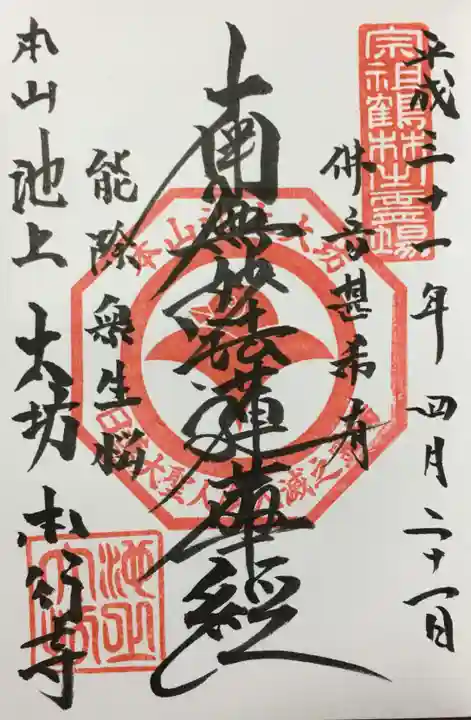 平成三十一年四月二十一日
宗祖鶴林之霊場
佛音甚希有
南無妙法蓮華経
能除衆生悩
本山池上大坊本行寺
池上大坊